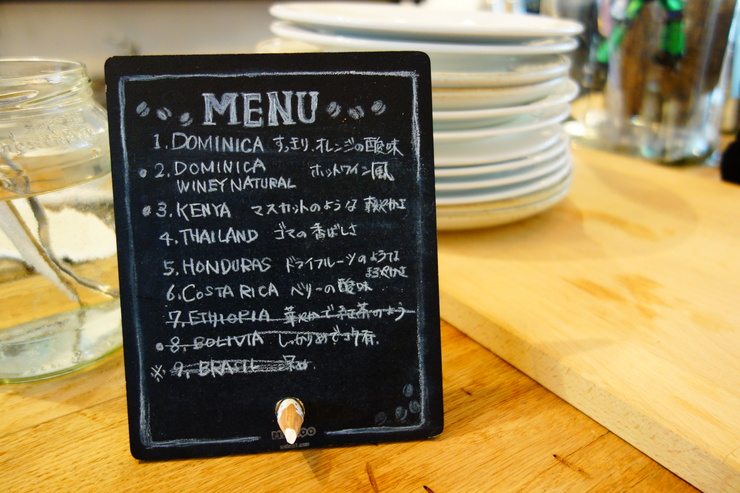 MENU
1. DOMINICA すっきり.オレンジの酸味
2. DOMINICA ホットワイン風
WINEY NATURAL
3. KENYA マスカットのような 爽やかさ
4. THAILAND ゴマの香ばしさ
5. HONDURAS ドライフルーツのような
まろやかさ
6. COSTA RICA ベリーの酸味
7. ETHIOPIA 華やかで紅茶のよう
8. BOLIVIA しっかりめでコク有.
※ 9. BRASIL